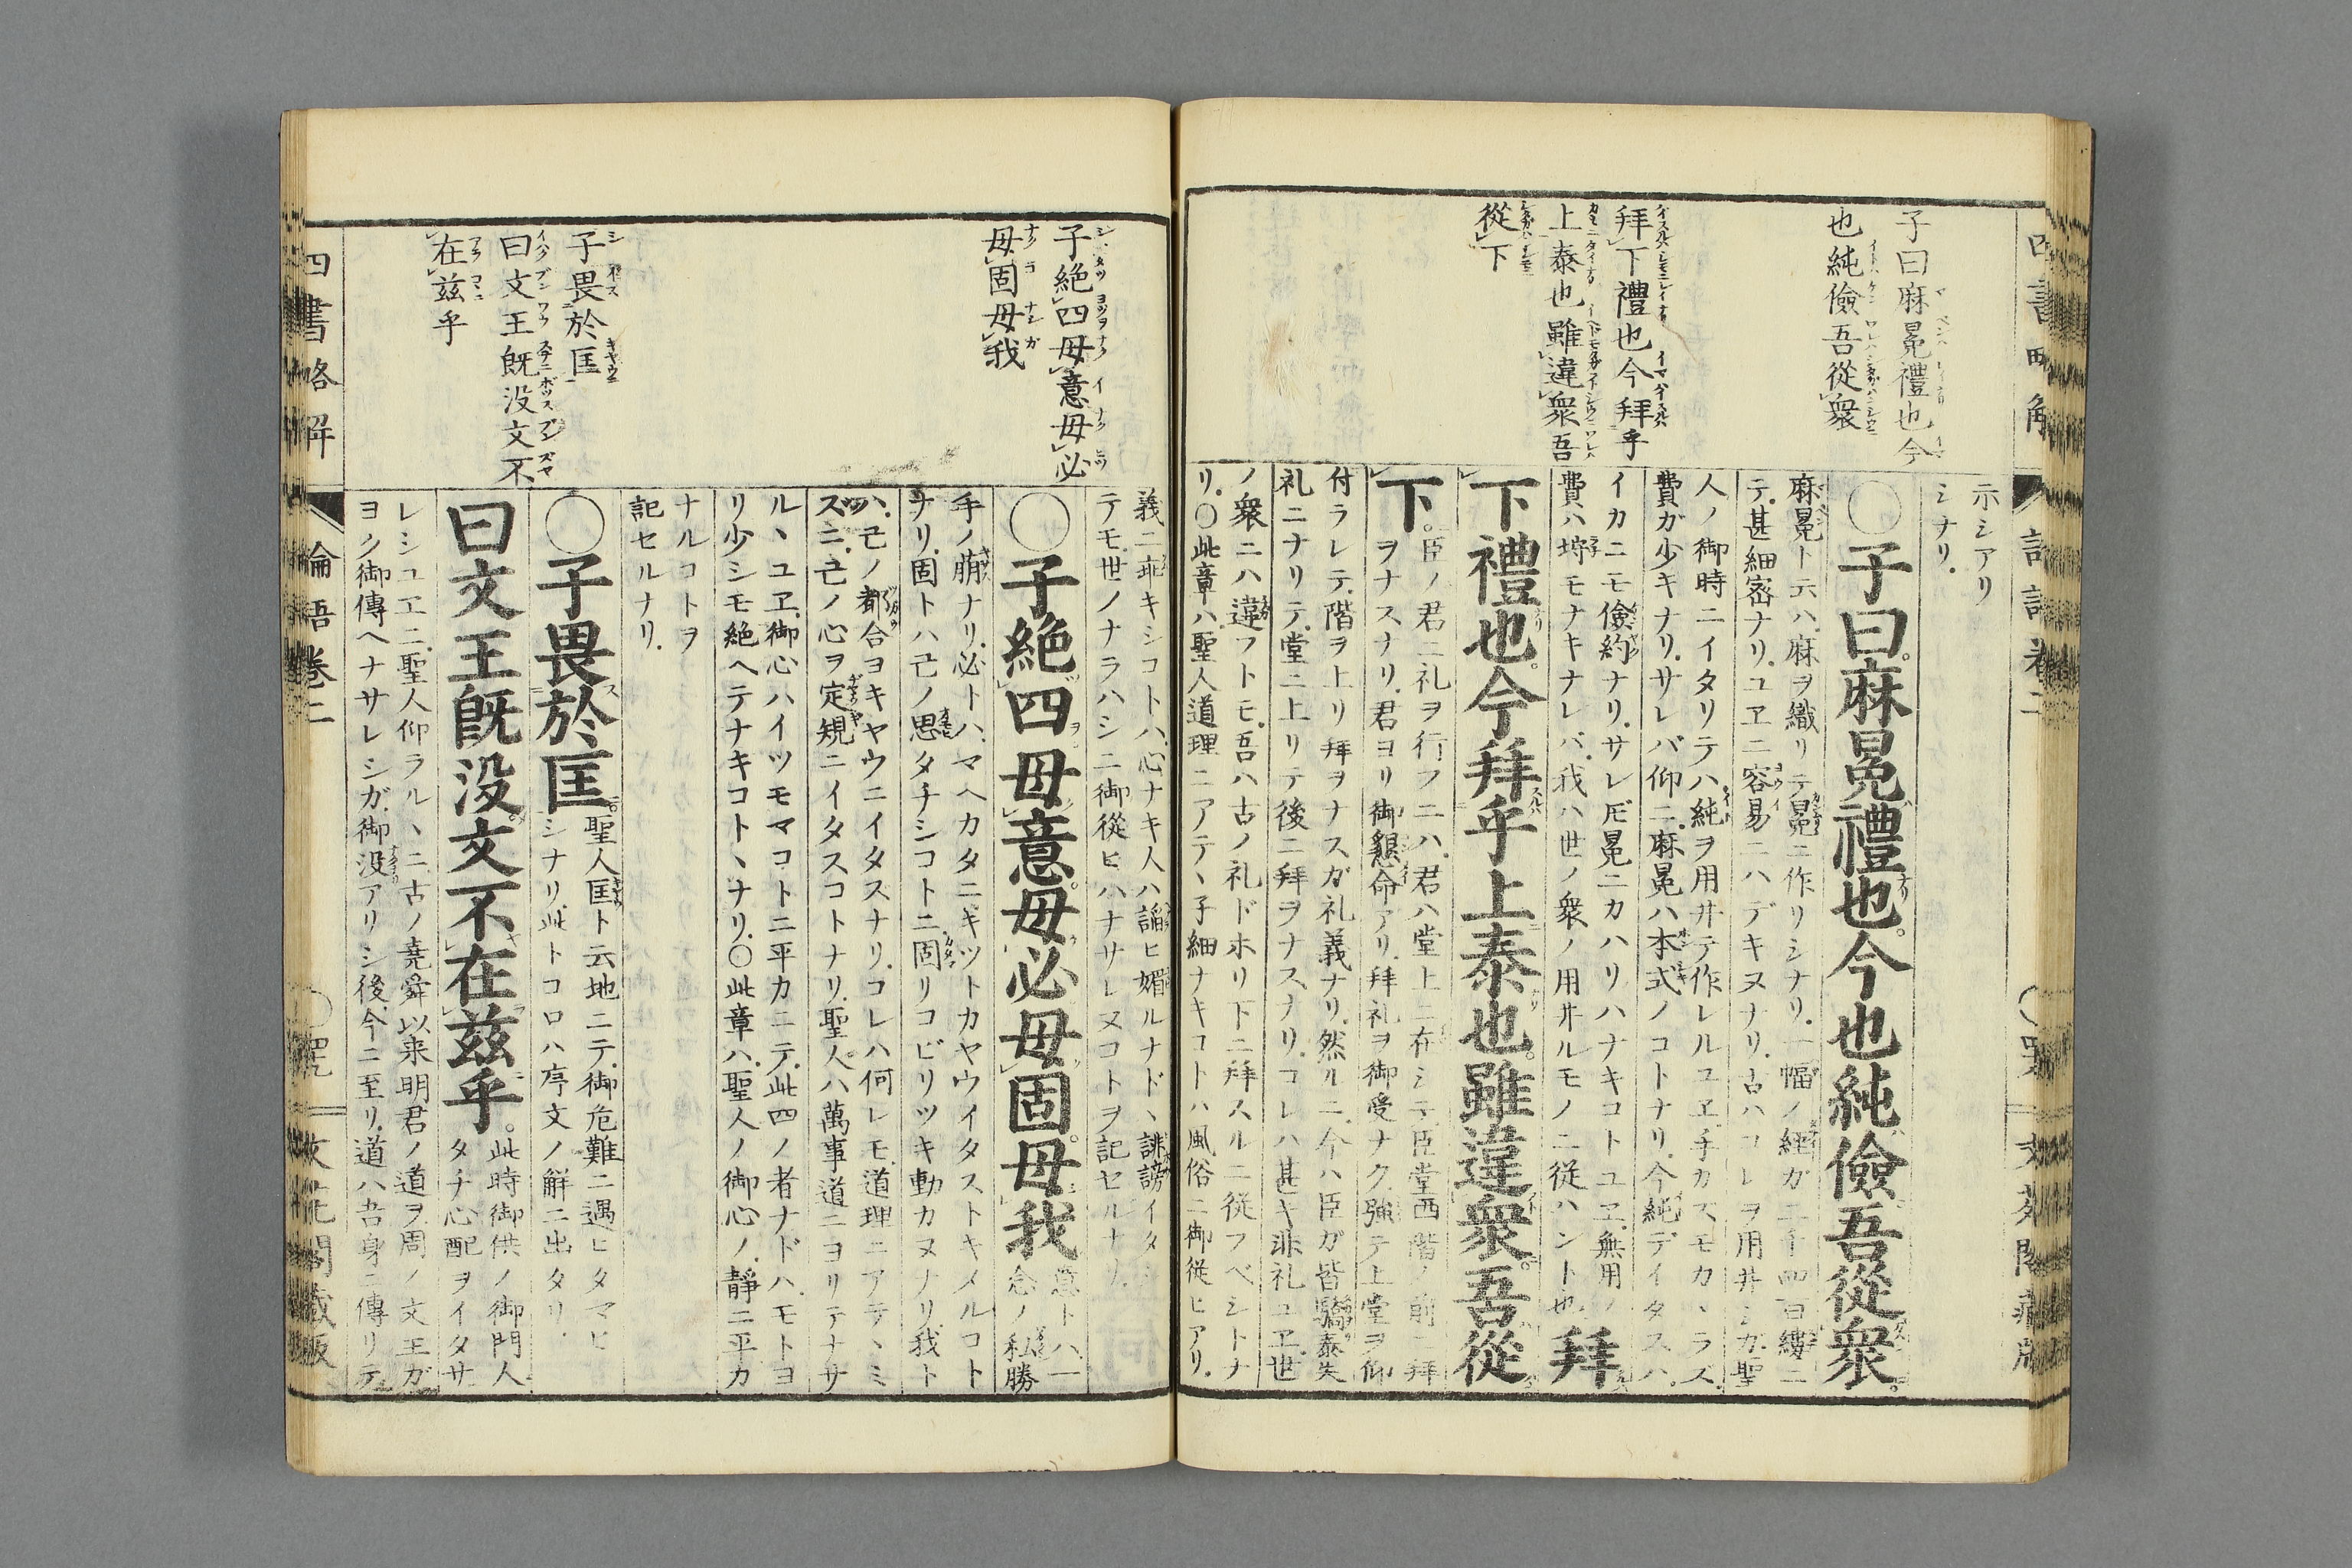 子曰麻冕禮也今
也純儉吾從衆
拜下禮也今拜乎
上泰也雖違衆吾
從下
示シアリ
シナリ.
〇子曰麻冕禮也今也純儉吾從衆
麻冕ト云ハ麻ヲ織リテ冕ニ作リシナリ.一幅ノ經ガ二千四百縷ニ
テ甚細密ナリ.ユヱニ容易ニハデキヌナリ.古ハコレヲ用井シガ聖
人ノ御時ニイタリテハ純ヲ用井テ作レルユヱ手カズモカヽラズ.
費ガ少キナリ.サレバ仰ニ麻冕ハ本式ノコトナリ.今純デイタスハ.
イカニモ儉約ナリ.サレ𪜈冕ニカハリハナキコトユヱ無用ノ
費ハ埓モナキナレバ.我ハ世ノ衆ノ用井ルモノニ從ハント也
拜
下禮也今拜乎上泰也雖違衆吾從
下
臣ノ君ニ礼ヲ行フニハ.君ハ堂上ニ在シテ臣堂西階ノ前ニ拜
ヲナスナリ.君ヨリ御懇命アリ.拜礼ヲ御受ナク強テ上堂ヲ仰
付ラレテ.階ヲ上リ拜ヲナスガ礼義ナリ.然ルニ.今ハ臣ガ皆驕泰失
礼ニナリテ.堂ニ上リテ後ニ拜ヲナスナリ.コレハ甚キ非礼ユヱ世
ノ衆ニハ違フトモ.吾ハ古ノ礼ドホリ下ニ拜スルニ從フベシトナ
リ.〇此章ハ.聖人道理ニアテヽ子細ナキコトハ風俗ニ御從ヒアリ.
子絶四毋意毋必
毋固毋我
子畏於匡
曰文王既没文不
在茲乎
義ニ乖キシコトハ.心ナキ人ハ謟ヒ媚ルナドヽ誹謗イタシ
テモ.世ノナラハシニ御從ヒハナサレヌコトヲ記セルナリ.
〇子絶四毋意毋必毋固毋我
意トハ一
念ノ私勝
手ノ萠ナリ.必トハ.マヘカタニキツトカヤウイタストキメルコト
ナリ.固トハ己ノ思タチシコトニ固リコビリツキ動カヌナリ.我ト
ハ.己ノ都合ヨキヤウニイタスナリ.コレハ何レモ.道理ニアテヽミ
ズニ.己ノ心ヲ定規ニイタスコトナリ.聖人ハ萬事道ニヨリテナサ
ルヽユヱ.御心ハイツモマコトニ平カニテ.此四ノ者ナドハ.モトヨ
リ少シモ絶ヘテナキコトヽナリ.〇此章ハ.聖人ノ御心ノ.靜ニ平カ
ナルコトヲ
記セルナリ.
〇子畏於匡
聖人匡ト云地ニテ.御危難ニ遇ヒタマヒ
シナリ.此トコロハ序文ノ解ニ出タリ.
曰文王既没文不在茲乎
此時御供ノ御門人
タチ心配ヲイタサ
レシユエニ.聖人仰ラルヽニ古ノ堯舜以来明君ノ道ヲ周ノ文王ガ
ヨク御傳ヘナサレシガ.御没アリシ後今ニ至リ.道ハ吾身ニ傳リテ
四書略解
論語卷二